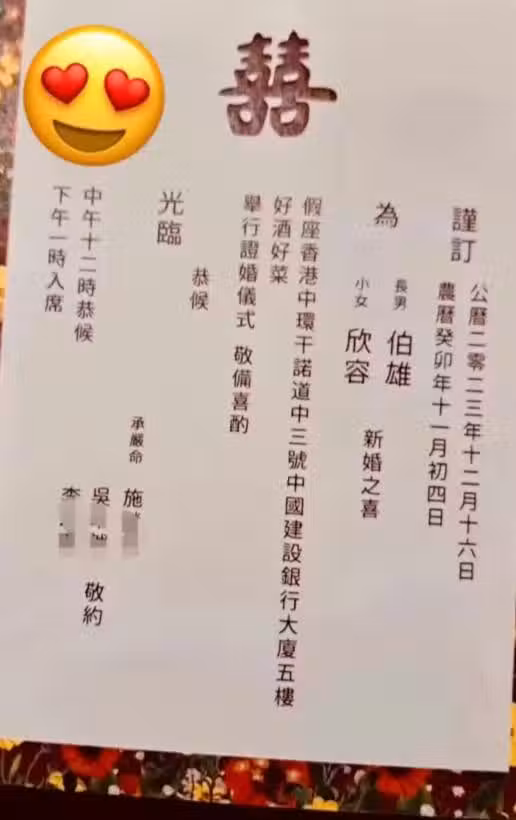 囍
謹訂
公曆二零二三年十二月十六日
農曆癸卯年十一月初四日
為
長男 伯雄
小女 欣容
新婚之喜
假座香港中環干諾道中三號中國建設銀行大廈五樓
好酒好菜
舉行證婚儀式 敬備喜酌
恭候
光臨
承嚴命 施
吳
李
敬約
中午十二時恭候
下午一時入席